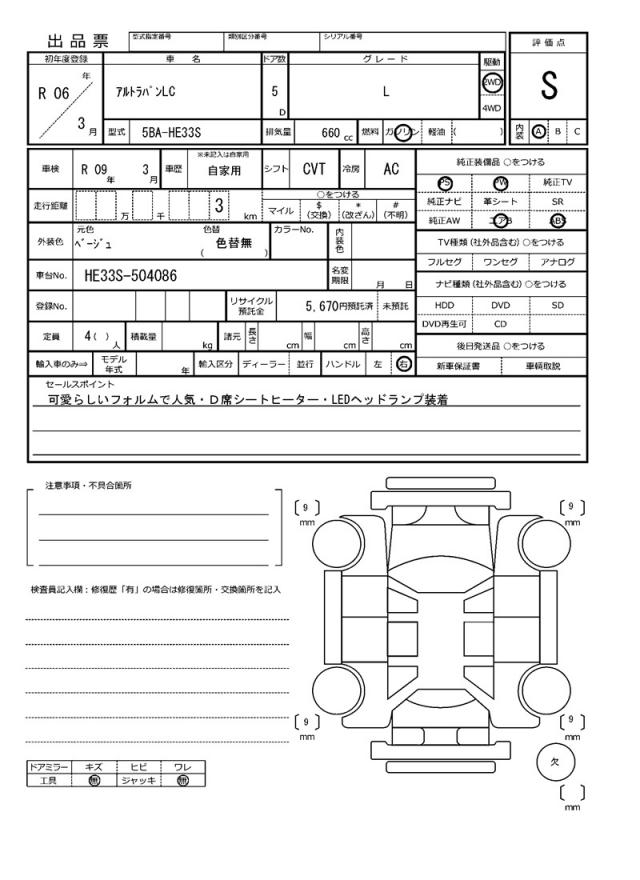 出品票
型式指定番号 類別区分番号 シリアル番号
評価点
S
初年度登録 車名 ドア数 グレード 駆動
R 06 年 3 月
アルトラパンLC 5 D L 2WD 4WD
型式 5BA-HE33S 排気量 660 cc 燃料 ガソリン 軽油 ( )
内装 A B C
車検 R 09 年 3 月 車歴 ※未記入は自家用 自家用 シフト CVT 冷房 AC
純正装備品 ○をつける
PS PW 純正TV
純正ナビ 革シート SR
純正AW エアB ABS
走行距離 万 千 3 km
○をつける
マイル $(交換) *(改ざん) #(不明)
外装色 元色 ベージュ 色替 色替無 ( ) カラーNo. 内装色
TV種類(社外品含む)○をつける
フルセグ ワンセグ アナログ
車台No. HE33S-504086 名変期限 月 日
ナビ種類(社外品含む)○をつける
HDD DVD SD
DVD再生可 CD
登録No. リサイクル預託金 5,670円預託済 未預託
定員 4( )人 積載量 kg 諸元 長さ cm 幅 cm 高さ cm
後日発送品 ○をつける
新車保証書 車輌取説
輸入車のみ⇒ モデル年式 年 輸入区分 ディーラー 並行 ハンドル 左 右
セールスポイント
可愛らしいフォルムで人気・D席シートヒーター・LEDヘッドランプ装着
注意事項・不具合箇所
検査員記入欄：修復歴「有」の場合は修復箇所・交換箇所を記入
9 mm
9 mm
9 mm
9 mm
欠
mm
ドアミラー キズ ヒビ ワレ
工具 無 ジャッキ 無